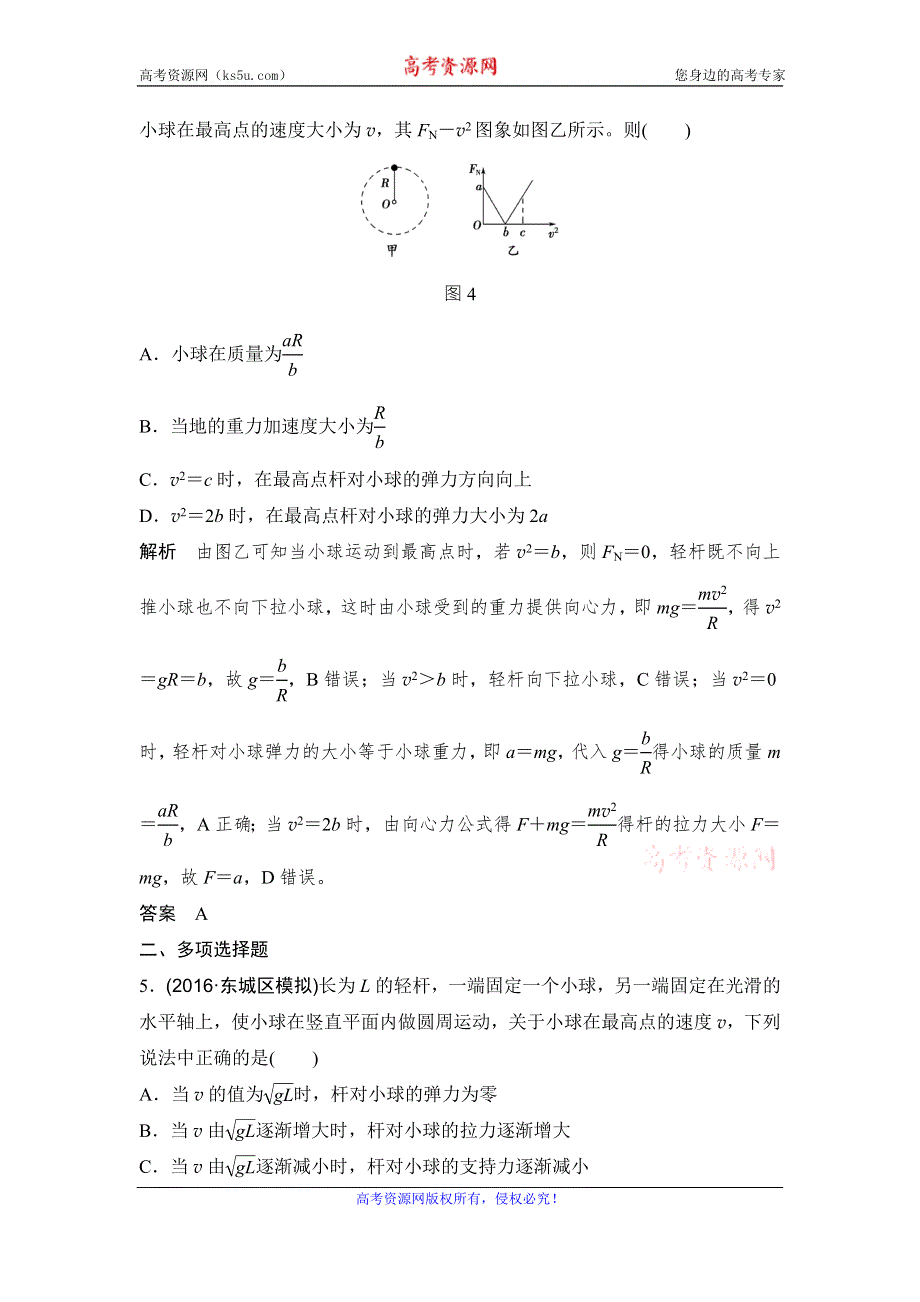 高考资源网(ks5u.com)
高考资源网
您身边的高考专家
小球在最高点的速度大小为v，其FN－v2图象如图乙所示。则(　　)
R
O
甲
FN
a
O
b
c
v2
乙
图4
A．小球在质量为aR/b
B．当地的重力加速度大小为R/b
C．v2＝c时，在最高点杆对小球的弹力方向向上
D．v2＝2b时，在最高点杆对小球的弹力大小为2a
解析　由图乙可知当小球运动到最高点时，若v2＝b，则FN＝0，轻杆既不向上
推小球也不向下拉小球，这时由小球受到的重力提供向心力，即mg＝mv2/R，得v2
＝gR＝b，故g＝b/R，B错误；当v2＞b时，轻杆向下拉小球，C错误；当v2＝0
时，轻杆对小球弹力的大小等于小球重力，即a＝mg，代入g＝b/R得小球的质量m
＝aR/b，A正确；当v2＝2b时，由向心力公式得F＋mg＝mv2/R得杆的拉力大小F＝
高考资源网
mg，故F＝a，D错误。
答案　A
二、多项选择题
5．(2016·东城区模拟)长为L的轻杆，一端固定一个小球，另一端固定在光滑的
水平轴上，使小球在竖直平面内做圆周运动，关于小球在最高点的速度v，下列
说法中正确的是(　　)
A．当v的值为√gL时，杆对小球的弹力为零
B．当v由√gL逐渐增大时，杆对小球的拉力逐渐增大
C．当v由√gL逐渐减小时，杆对小球的支持力逐渐减小
高考资源网版权所有，侵权必究！